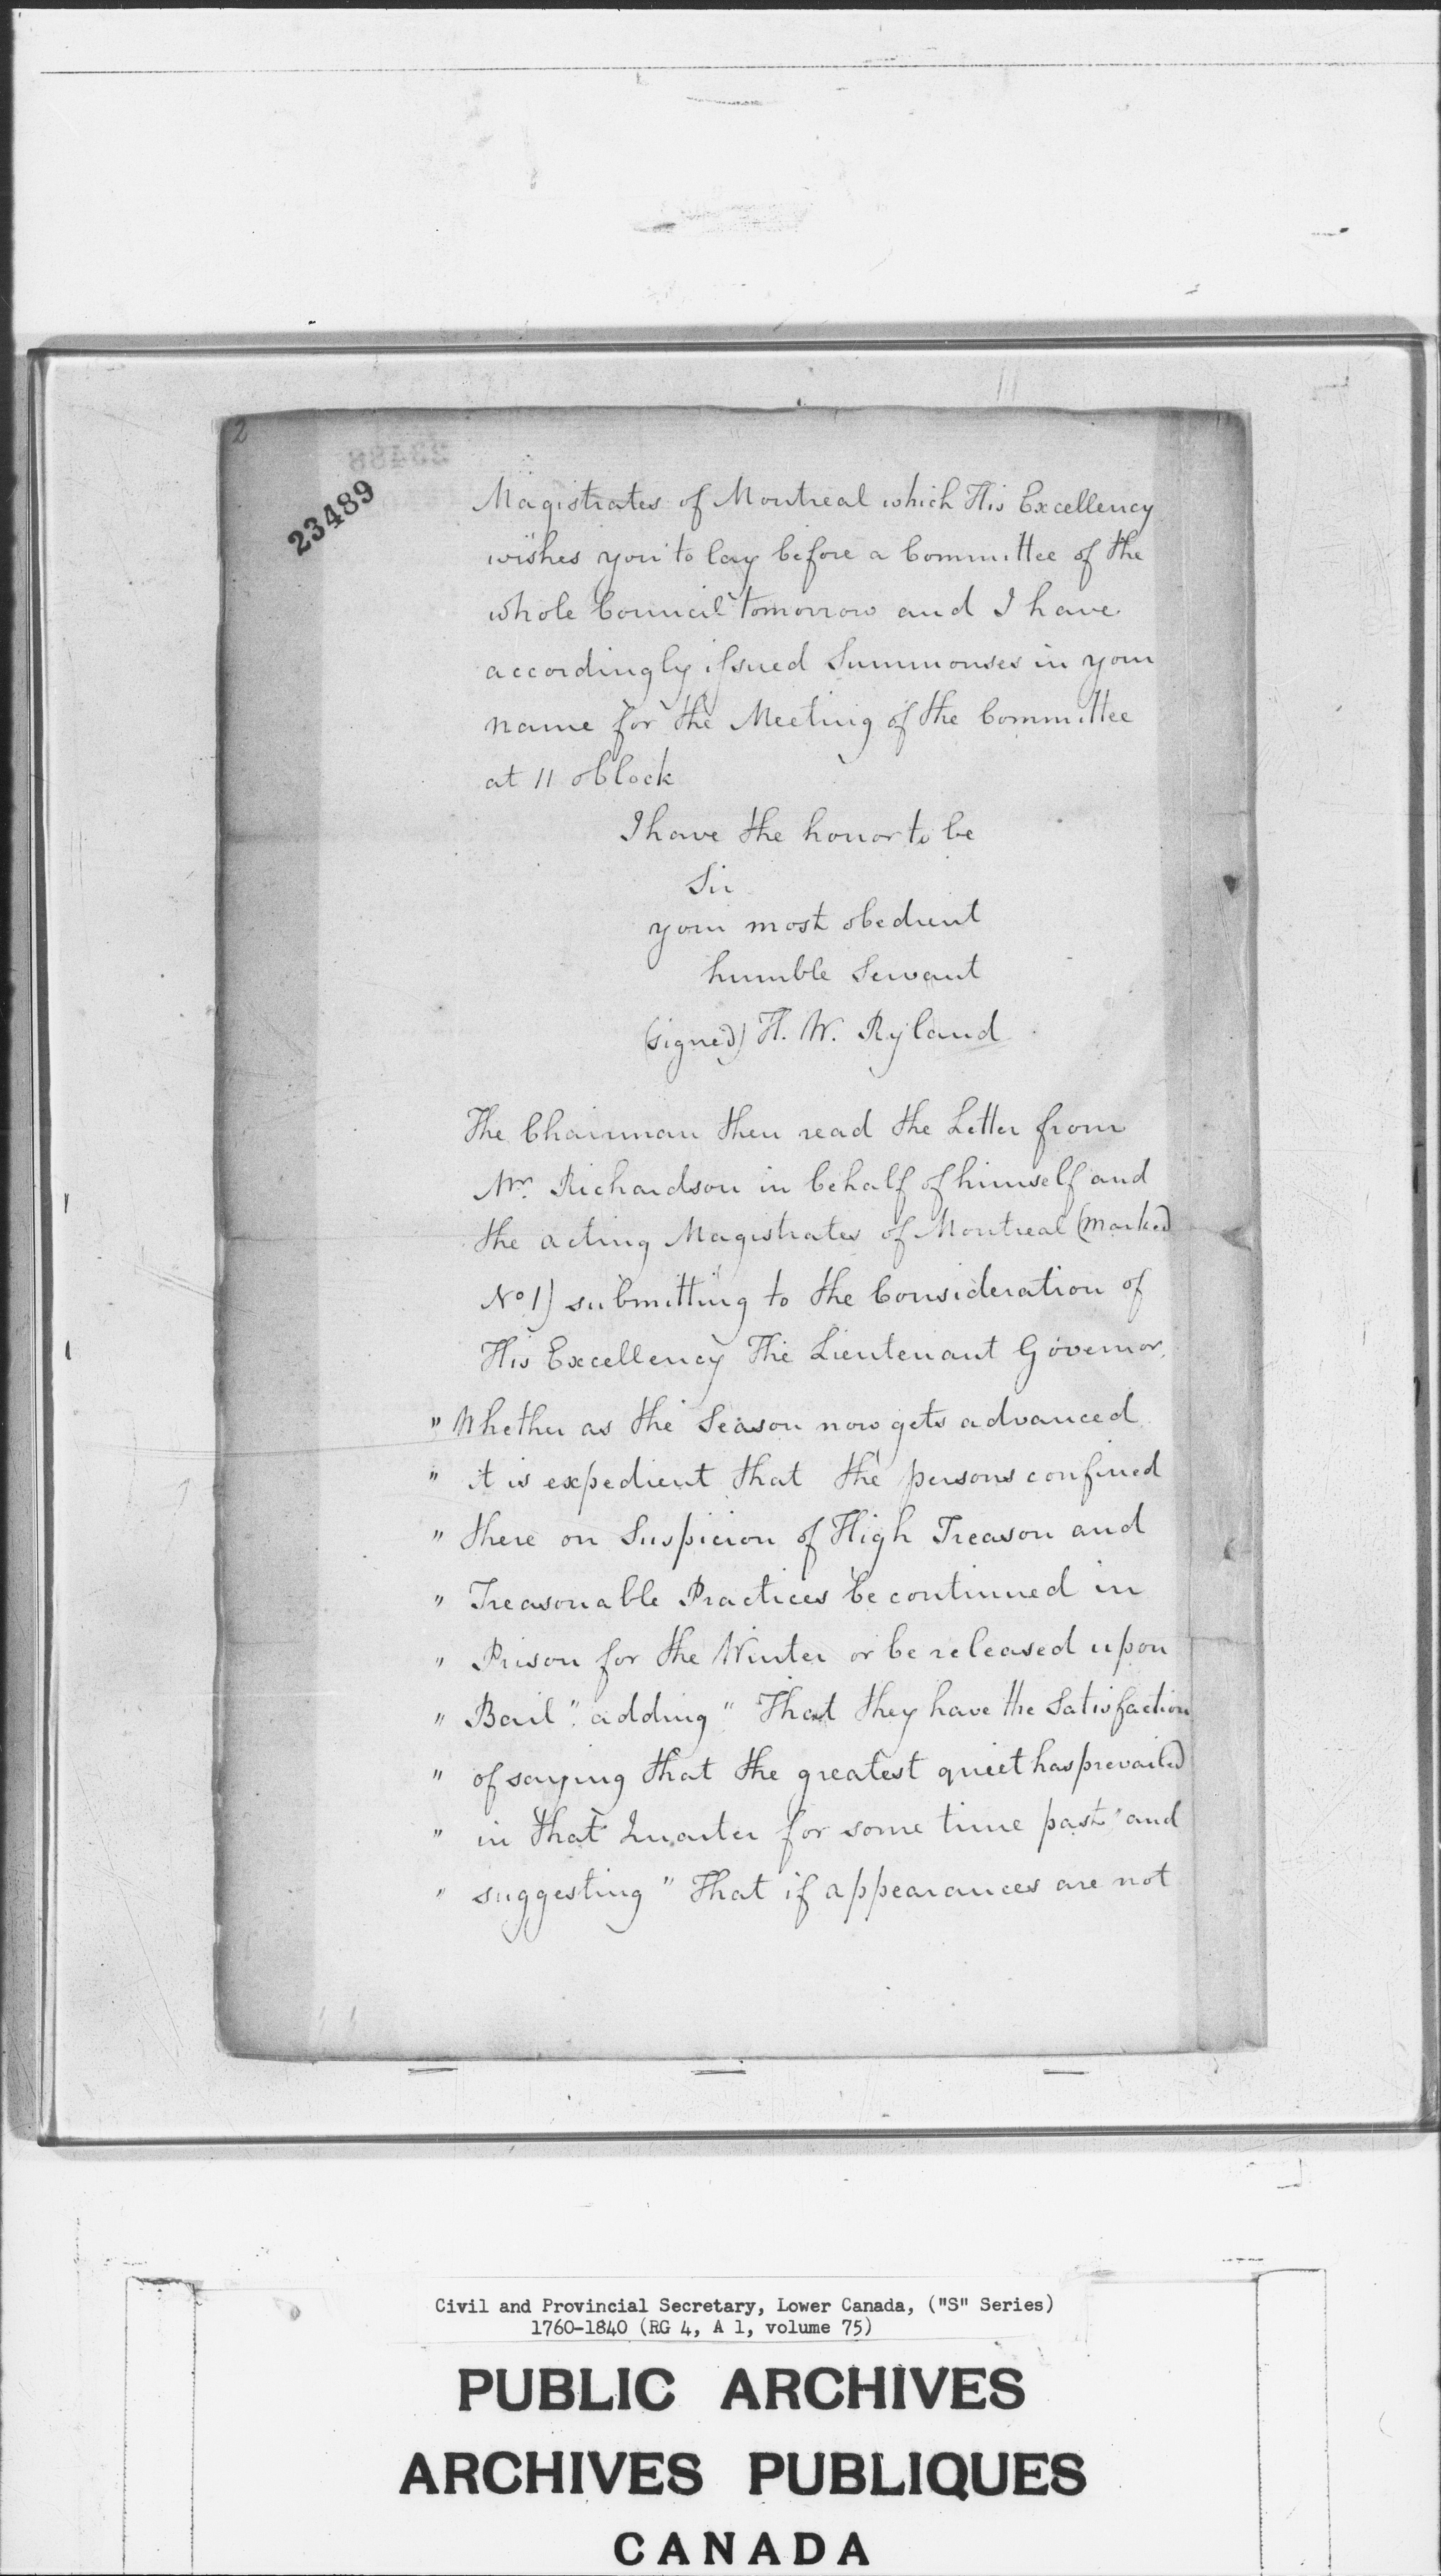 2
23488
23489
Magistrates of Montreal which His Excellency
wishes you to lay before a Committee of the
whole Council tomorrow and I have
accordingly issued Summonses in your
name for the Meeting of the Committee
at 11 oClock
I have the honor to be
Sir
your most obedient
humble Servant
(signed) H. W. Ryland
The Chairman then read the Letter from
Mr. Richardson in behalf of himself and
the acting Magistrates of Montreal (marked
No 1) submitting to the Consideration of
His Excellency The Lieutenant Governor,
" Whether as the Season now gets advanced
" it is expedient that the persons confined
" there on Suspicion of High Treason and
" Treasonable Practices be continued in
" Prison for the Winter or be released upon
" Bail". adding " That they have the Satisfaction
" of saying that the greatest quiet has prevailed
" in that Quarter for some time past" and
" suggesting " That if appearances are not
Civil and Provincial Secretary, Lower Canada, ("S" Series)
1760-1840 (RG 4, A 1, volume 75)
PUBLIC ARCHIVES
ARCHIVES PUBLIQUES
CANADA